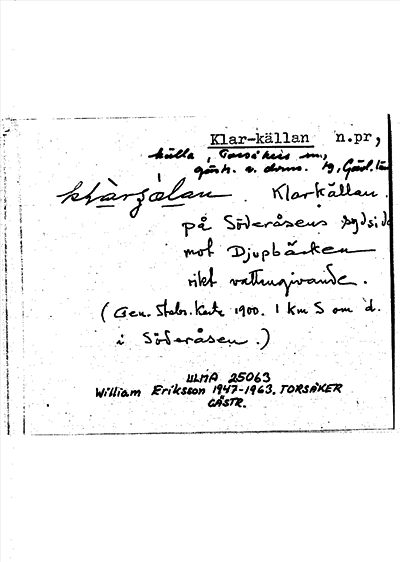 Klar-källan n.pr,
källa, Torsåkers sn,
Gästr. v. doms. hg, Gävl. län
Klarkällan.
på Söderåsens sydsida
mot Djupbäcken
rikt vattengivande.
(Gen. Stabs. Karta 1900. 1 km S om d.
i Söderåsen.)
ULMA 25063
William Eriksson 1947-1963. TORSÅKER
GÄSTR.